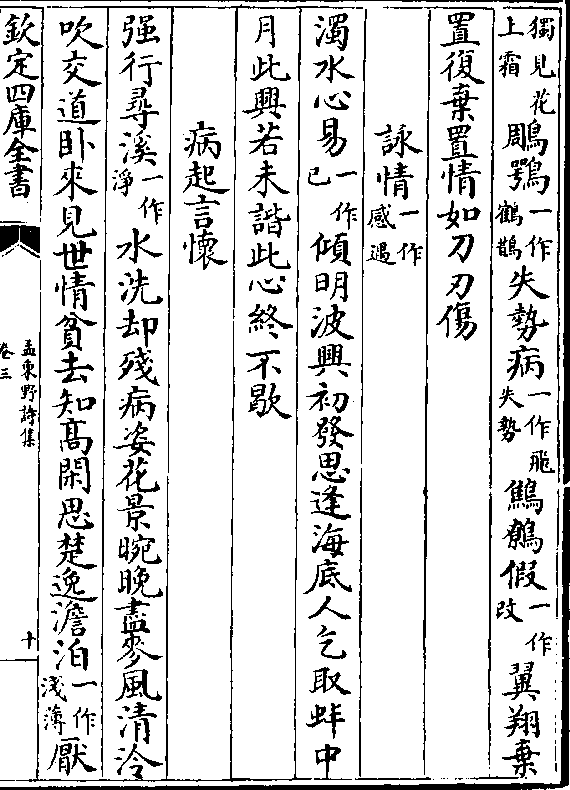 獨見花上霜鵰鶚一作鶴鵲失勢病一作飛失勢鷦鷯假一作改翼翔棄
置復棄置情如刀刃傷
詠情一作感遇
濁水心易一作已傾明波興初發思逢海底人乞取蚌中
月此興若未諧此心終不歇
病起言懷
强行尋溪一作淨水洗却殘病姿花景晼晚盡麥風清泠
吹交道卧來見世情貧去知高閑思楚逸澹泊一作淺薄厭
欽定四庫全書
孟東野詩集
卷三
十